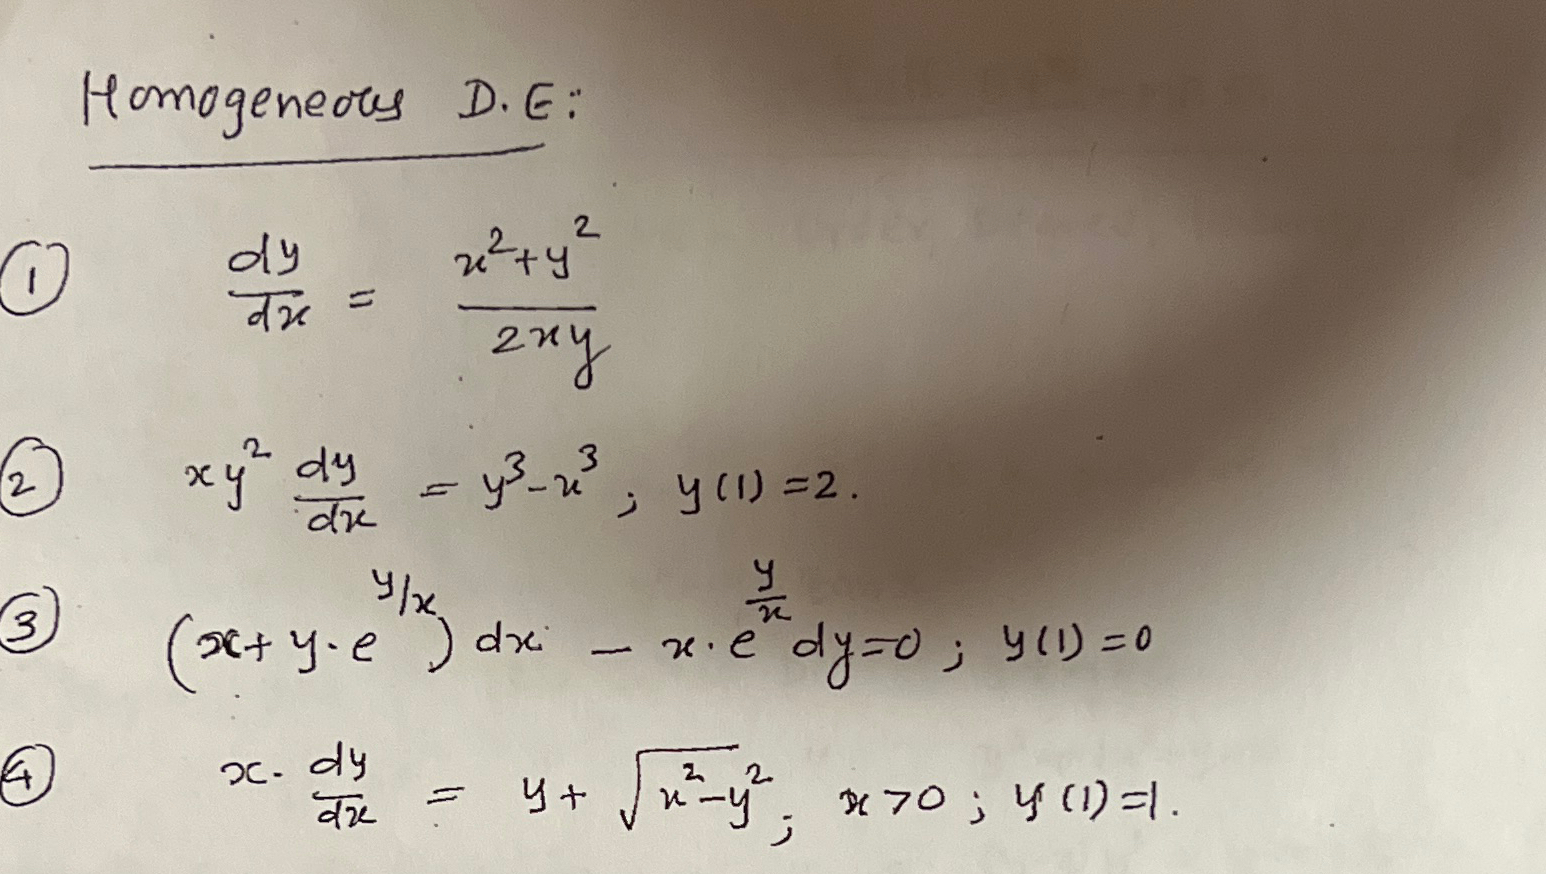 Homogeneous D.E:
① dy/dx = (x²+y²)/(2xy)
② xy² dy/dx = y³-x³ ; y(1)=2.
③ (x+y·e^(y/x)) dx - x·e^(y/x) dy=0 ; y(1)=0
④ x· dy/dx = y+√(x²-y²) ; x>0 ; y(1)=1.